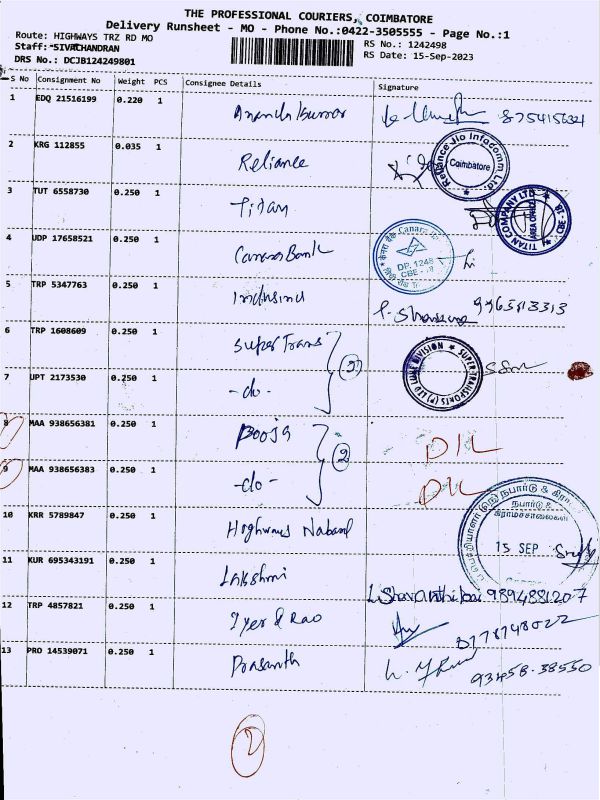 THE PROFESSIONAL COURIERS, COIMBATORE
Delivery Runsheet - MO - Phone No.:0422-3505555 - Page No.:1
Route: HIGHWAYS TRZ RD MO
RS No.: 1242498
Staff: SIVACHANDRAN
RS Date: 15-Sep-2023
DRS No.: DCJB124249801
S No Consignment No Weight PCS Consignee Details Signature
1 EDQ 21516199 0.220 1
2 KRG 112855 0.035 1 Reliance
Reliance Jio Infocomm Ltd. Coimbatore
3 TUT 6558730 0.250 1 Titan
TITAN COMPANY LTD. AREA OFFICE CBE - 18
4 UDP 17658521 0.250 1 Canara Bank
Canara
DP. 1248
CBE
5 TRP 5347763 0.250 1 Indusind
6 TRP 1608609 0.250 1 Super Trans
7 UPT 2173530 0.250 1 -do-
LUXE DIVISION SUPER TRANSPORTS (P) LTD
8 MAA 938656381 0.250 1 Pooja 2 D/L
9 MAA 938656383 0.250 1 -do- D/L
10 KRR 5789847 0.250 1 Highways Nabard
நபார்டு &
கிராமச்சாலைகள்
15 SEP
11 KUR 695343191 0.250 1 Lakshmi
9894881207
12 TRP 4857821 0.250 1 Iyer & Rao
13 PRO 14539071 0.250 1 Prasanth
93458-38550
2